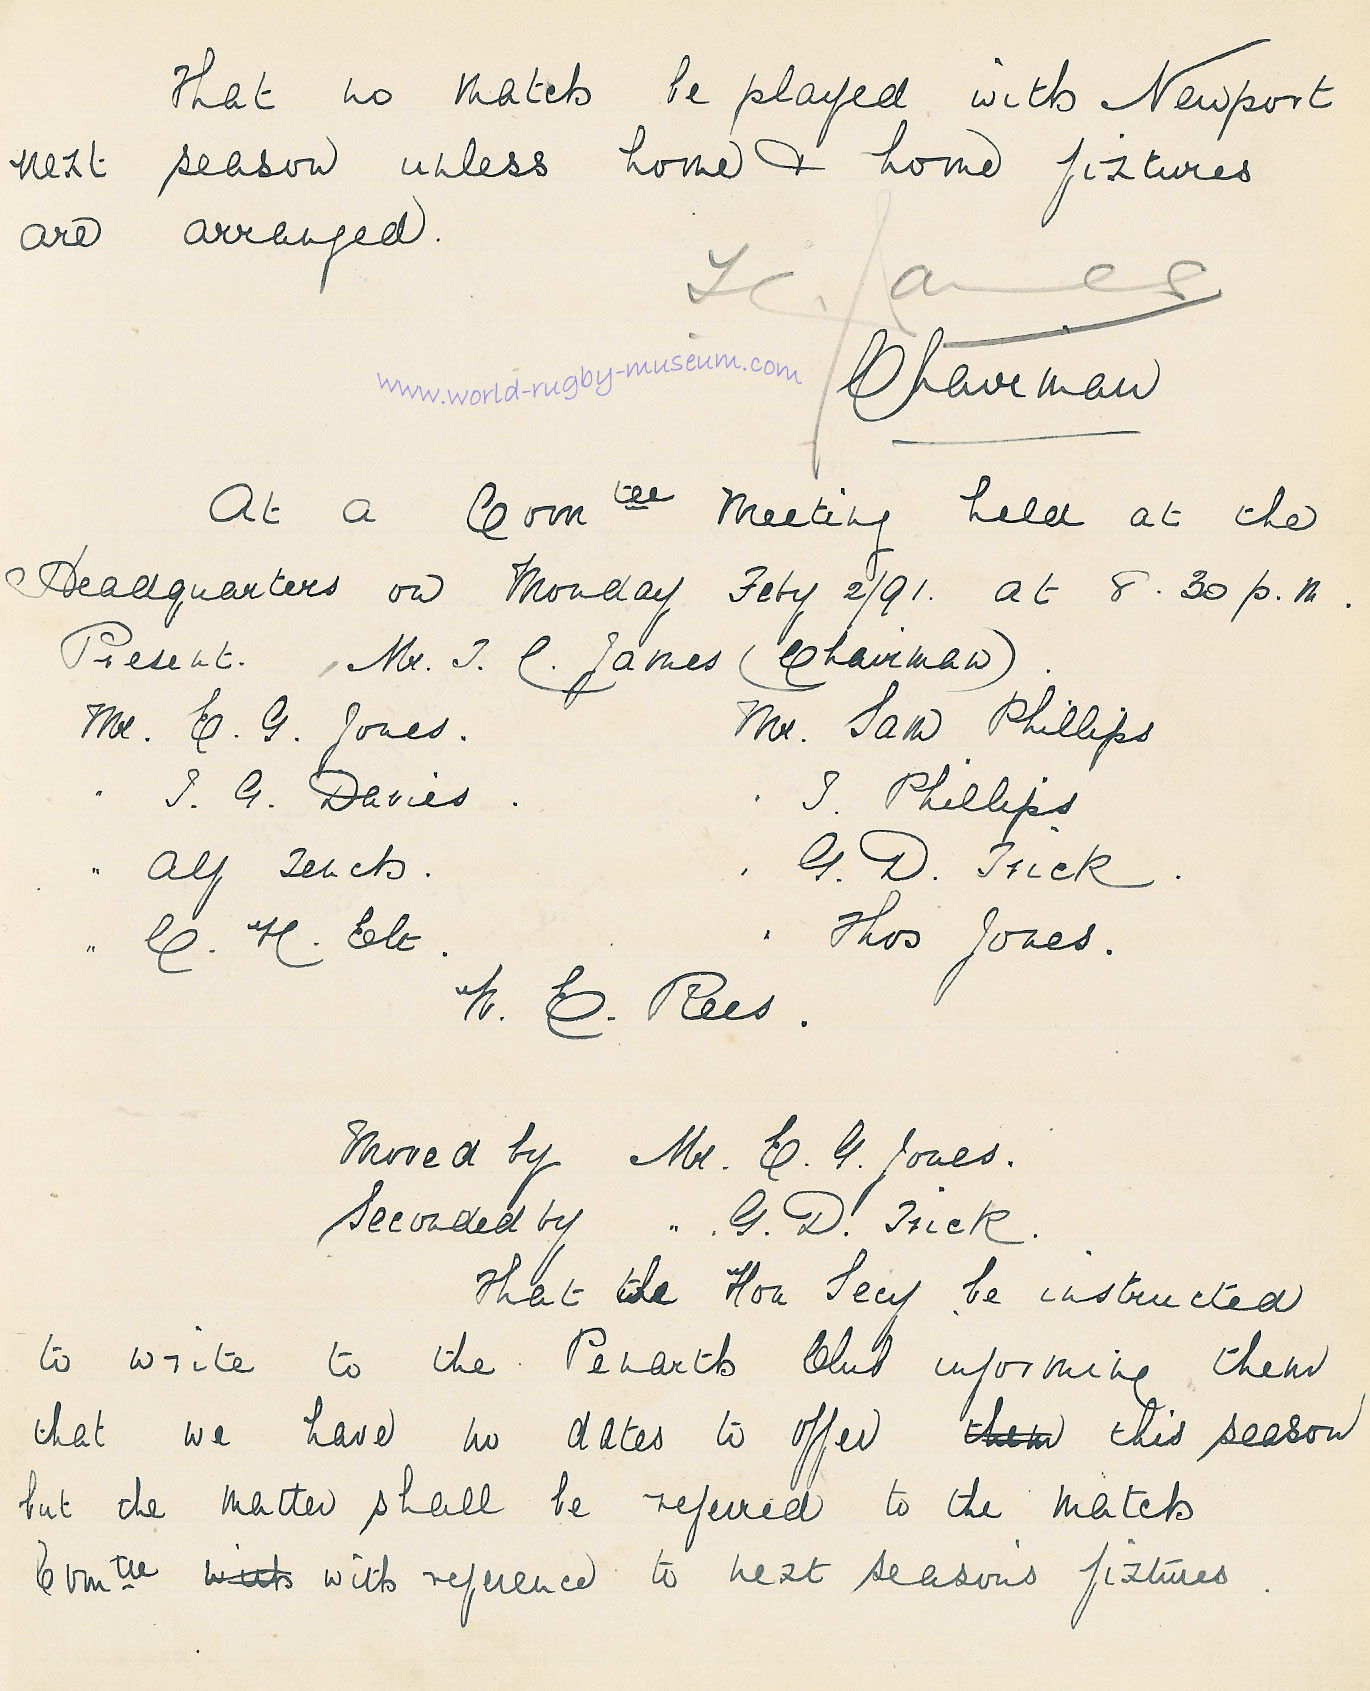 That no match be played with Newport
next season unless home & home fixtures
are arranged.
T C. James
www.world-rugby-museum.com
Chairman
At a Comtee Meeting held at the
Headquarters on Monday Feby 2/91. at 8.30 p.m.
Present. Mr. T. C. James (Chairman).
Mr. E. G. Jones. Mr. Sam Phillips
" T. G. Davies. " T. Phillips
" Alf Tench. " G. D. Trick.
" C. H. Elt. " Thos Jones.
W. E. Rees.
Moved by Mr. E. G. Jones.
Seconded by " . G. D. Trick.
That the Hon Secy be instructed
to write to the Penarth Club informing them
that we have no dates to offer them this season
but the matter shall be referred to the match
Comtee with with reference to next season's fixtures.